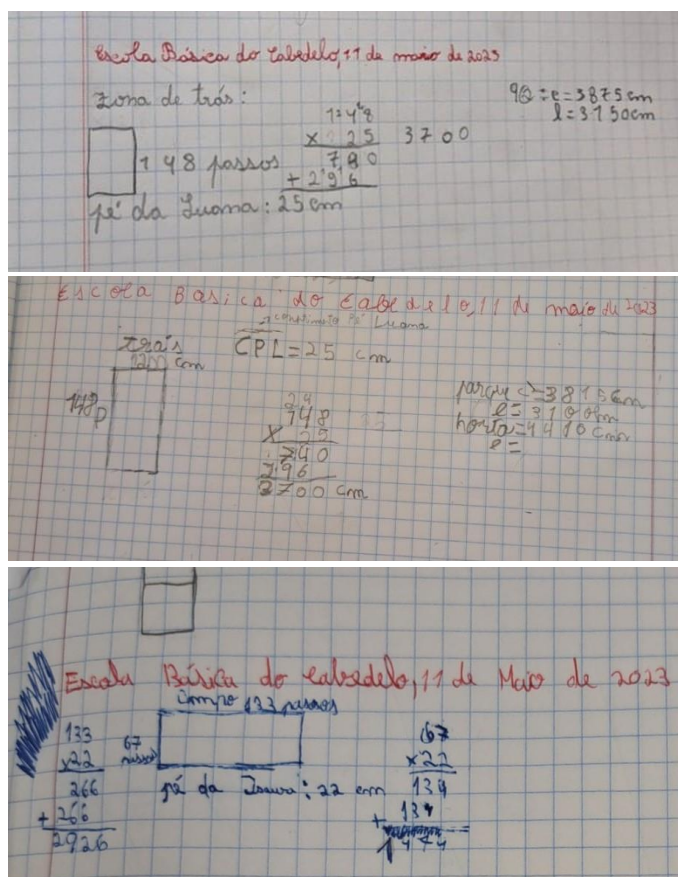 Escola Básica do Cabedelo, 11 de maio de 2023
zona de trás:
148
x 25 3700
780
+ 296
148 passos
pé da Luana: 25 cm
c = 3875 cm
l = 3150 cm
Escola Básica do Cabedelo, 11 de maio de 2023
comprimento pé Luana
CPL = 25 cm
trás
1200 cm
148p
24
148
x 25
740
296
3700 cm
parque c = 3815 cm
l = 3100 cm
horta = 4410 cm
l =
Escola Básica do Cabedelo, 11 de Maio de 2023
campo 133 passos
67 passos
133
x 22
266
+ 266
2926
pé da Isaura: 22 cm
67
x 22
134
+ 134
1474